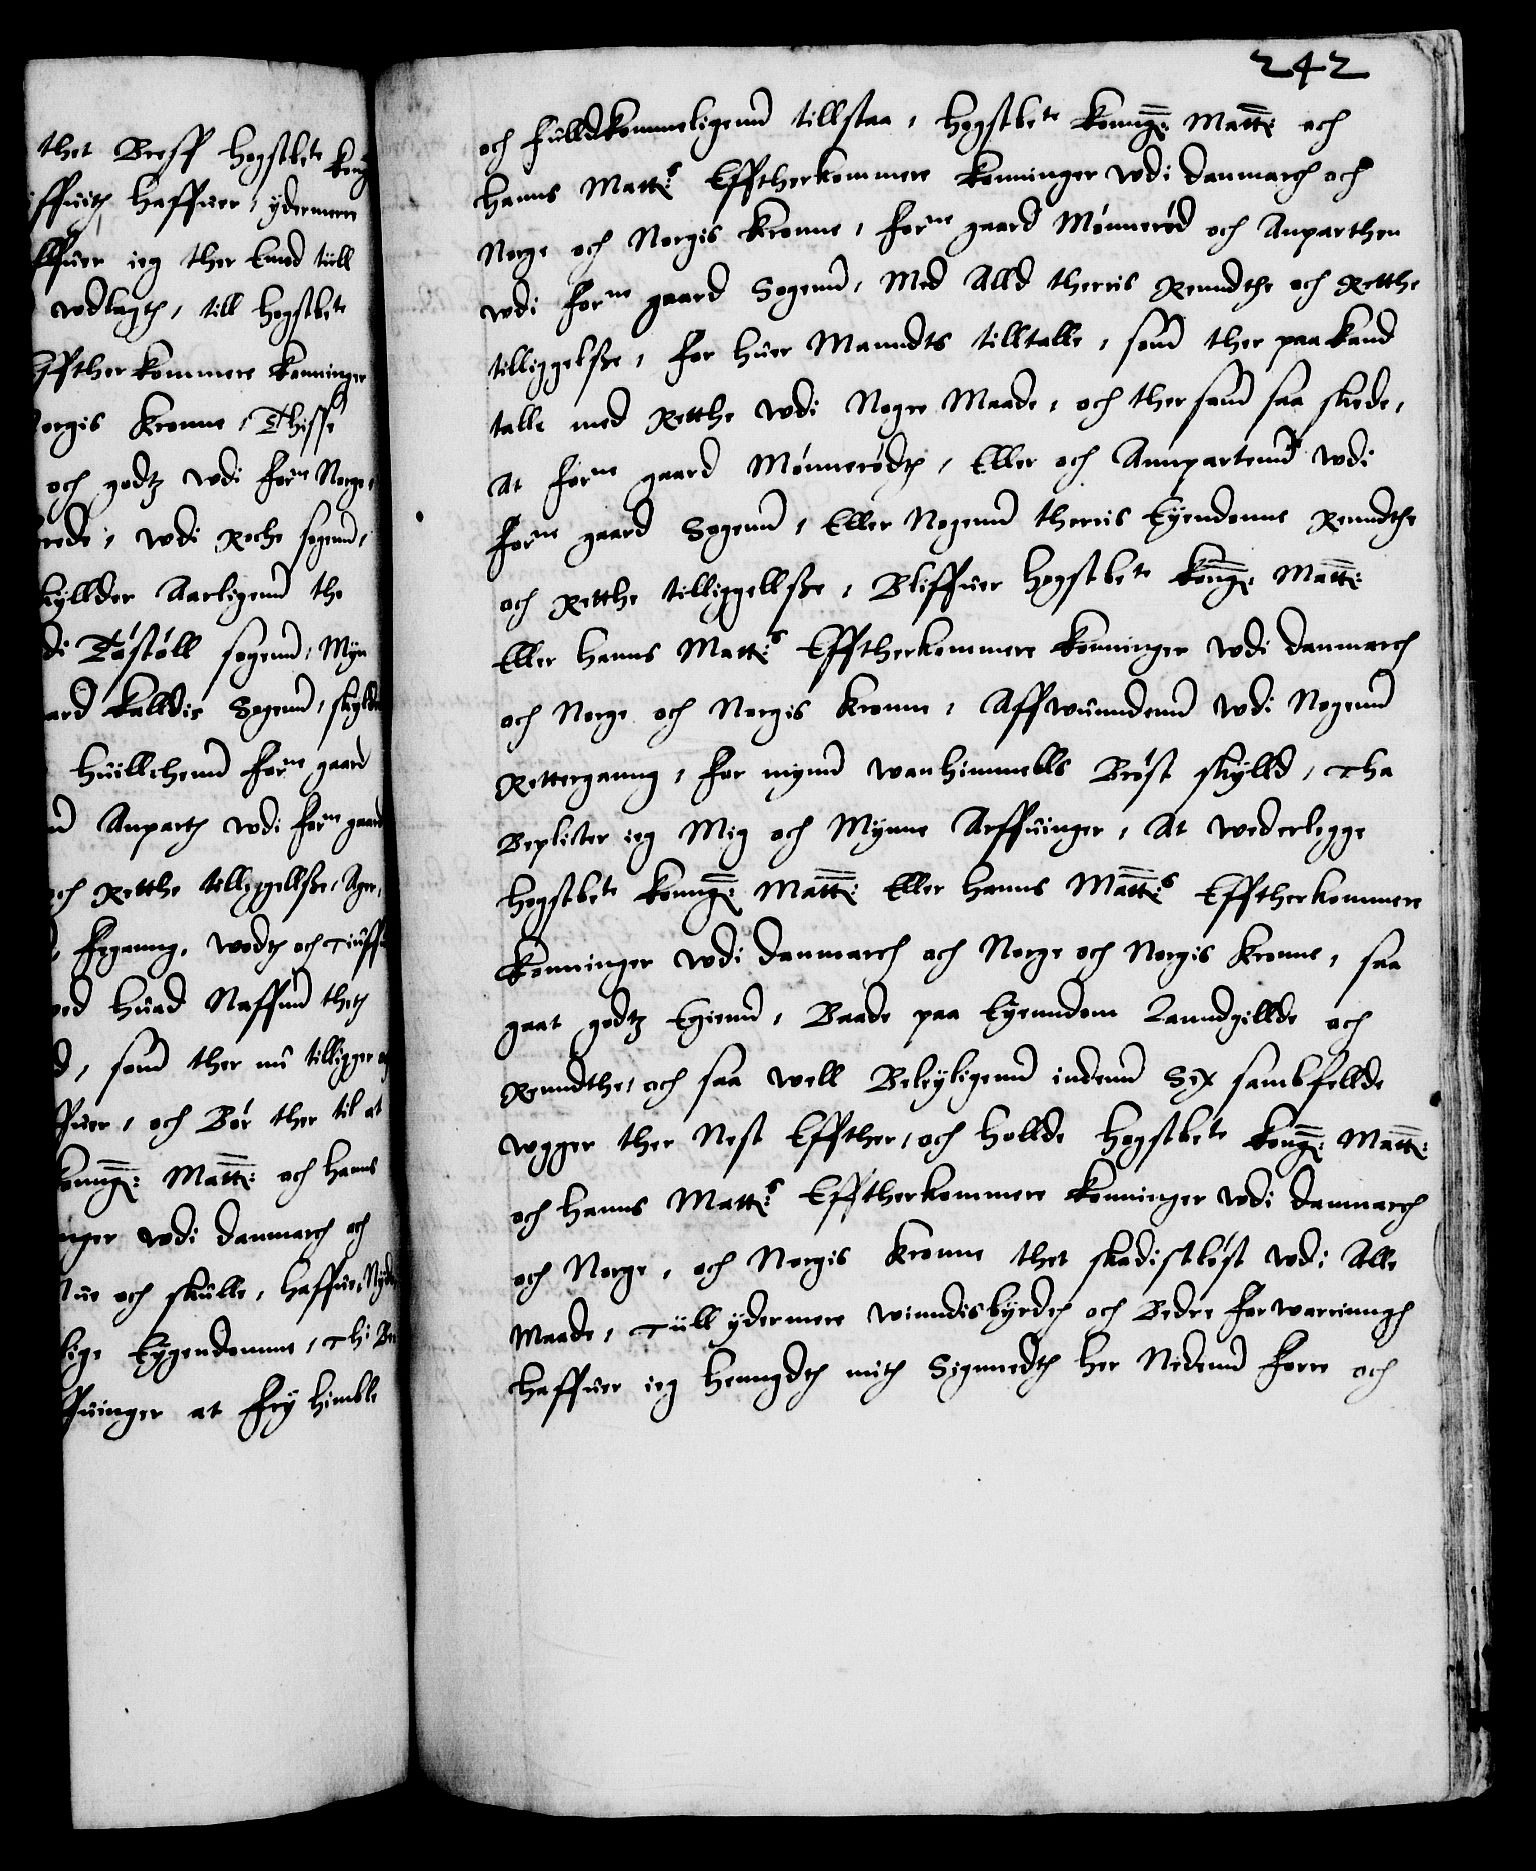 thet Breff hogstbete Kong
iffuith haffuer, ydermere
ffuer ieg ther Emod till
wdlagth, till hogstbete
Effther kommere Konninger
orgis Kronne, Thisse
och godtz wdi forne Norge,
rede, wdi Roche sogenn,
kyllder Aarligenn the
di Tóstóll sogenn, Myn
ard kalldis Sogenn, skylde
huillchenn forne gaard
nn Anparth wdi forne gaard
och Retthe tilliggellsse, Ager,
Feganng, wodth och Tiuff
ved huad Naffnn theth
d, som ther nu tilligger og
ffuer, och Bór ther til at
Konng: Matt: och hanns
nger wdi danmarch och
lue och skulle, haffue, Nyde
lige Eygendomme, Thi Be
ffuinger at Fry himble
242
och fulldkommeligenn tillstaa, hogstbete Konng: Matt: och
hanns Matt:s Efftherkommere Konninger wdi danmarch och
Norge och Norgis Kronne, forne gaard Mónneród och Anparthen
wdi forne gaard Sogenn, Med Alld therris Renndthe och Retthe
tilliggelsse, for huer Manndts tilltalle, som ther paa kand
talle med Retthe wdi Nogre Maade, och ther som saa skede,
At forne gaard Mónneródth, Eller och Annpartenn wdi
forne gaard Sogenn, Eller Nogenn therris Eyendomme Renndthe
och Retthe tilliggellsse, Bliffuer hogstbete Konng: Matt:
Eller hanns Matt:s Efftherkommere Konninger wdi danmarch
och Norge och Norgis Kronne, Affwunndenn wdi Nogenn
Retterganng, for mynn wanhimmells Bróst skylld, Tha
Beplicter ieg Mig och Mynne Arffuinger, At wederlegge
hogstbete Konng: Matt: Eller hanns Matt:s Efftherkommere
Konninger wdi danmarch och Norge och Norgis Kronne, saa
gaat godtz Egienn, Baade paa Eyenndom Lanndgillde och
Renndthe, och saa well Beleyligenn indenn Sex sambfellde
wgger ther Nest Effther, och hollde hogstbete Konng: Matt:
och hanns Matt:s Efftherkommere Konninger wdi danmarch
och Norge, och Norgis Kronne thet skadistlóst wdi Alle
Maade, Till ydermere winndisbyrdth och Bedre forwarinngh
haffuer ieg henngdth mith Signnedth her Nedenn forre och